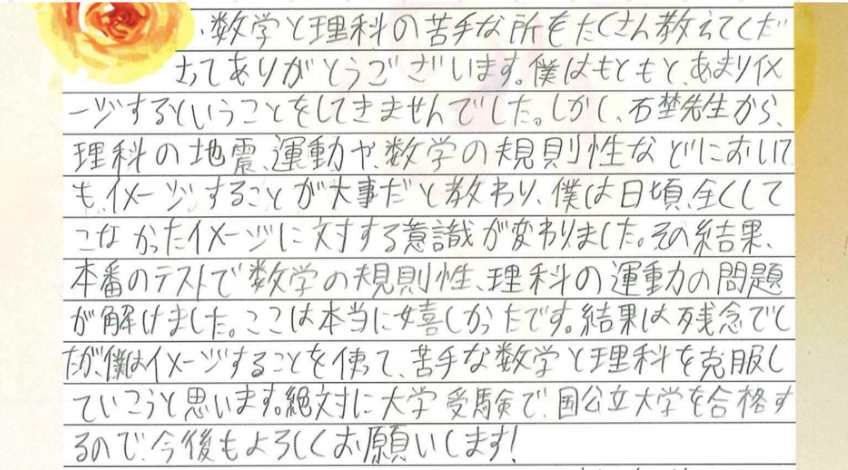 、数学と理科の苦手な所をたくさん教えてくだ
さってありがとうございます。僕はもともと、あまりイメ
ージするということをしてきませんでした。しかし、石埜先生から、
理科の地震、運動や、数学の規則性などにおいて
も、イメージすることが大事だと教わり、僕は日頃、全くして
こなかったイメージに対する意識が変わりました。その結果、
本番のテストで数学の規則性、理科の運動の問題
が解けました。ここは本当に嬉しかったです。結果は残念でし
たが、僕はイメージすることを使って、苦手な数学と理科を克服し
ていこうと思います。絶対に大学受験で、国公立大学を合格す
るので、今後もよろしくお願いします!